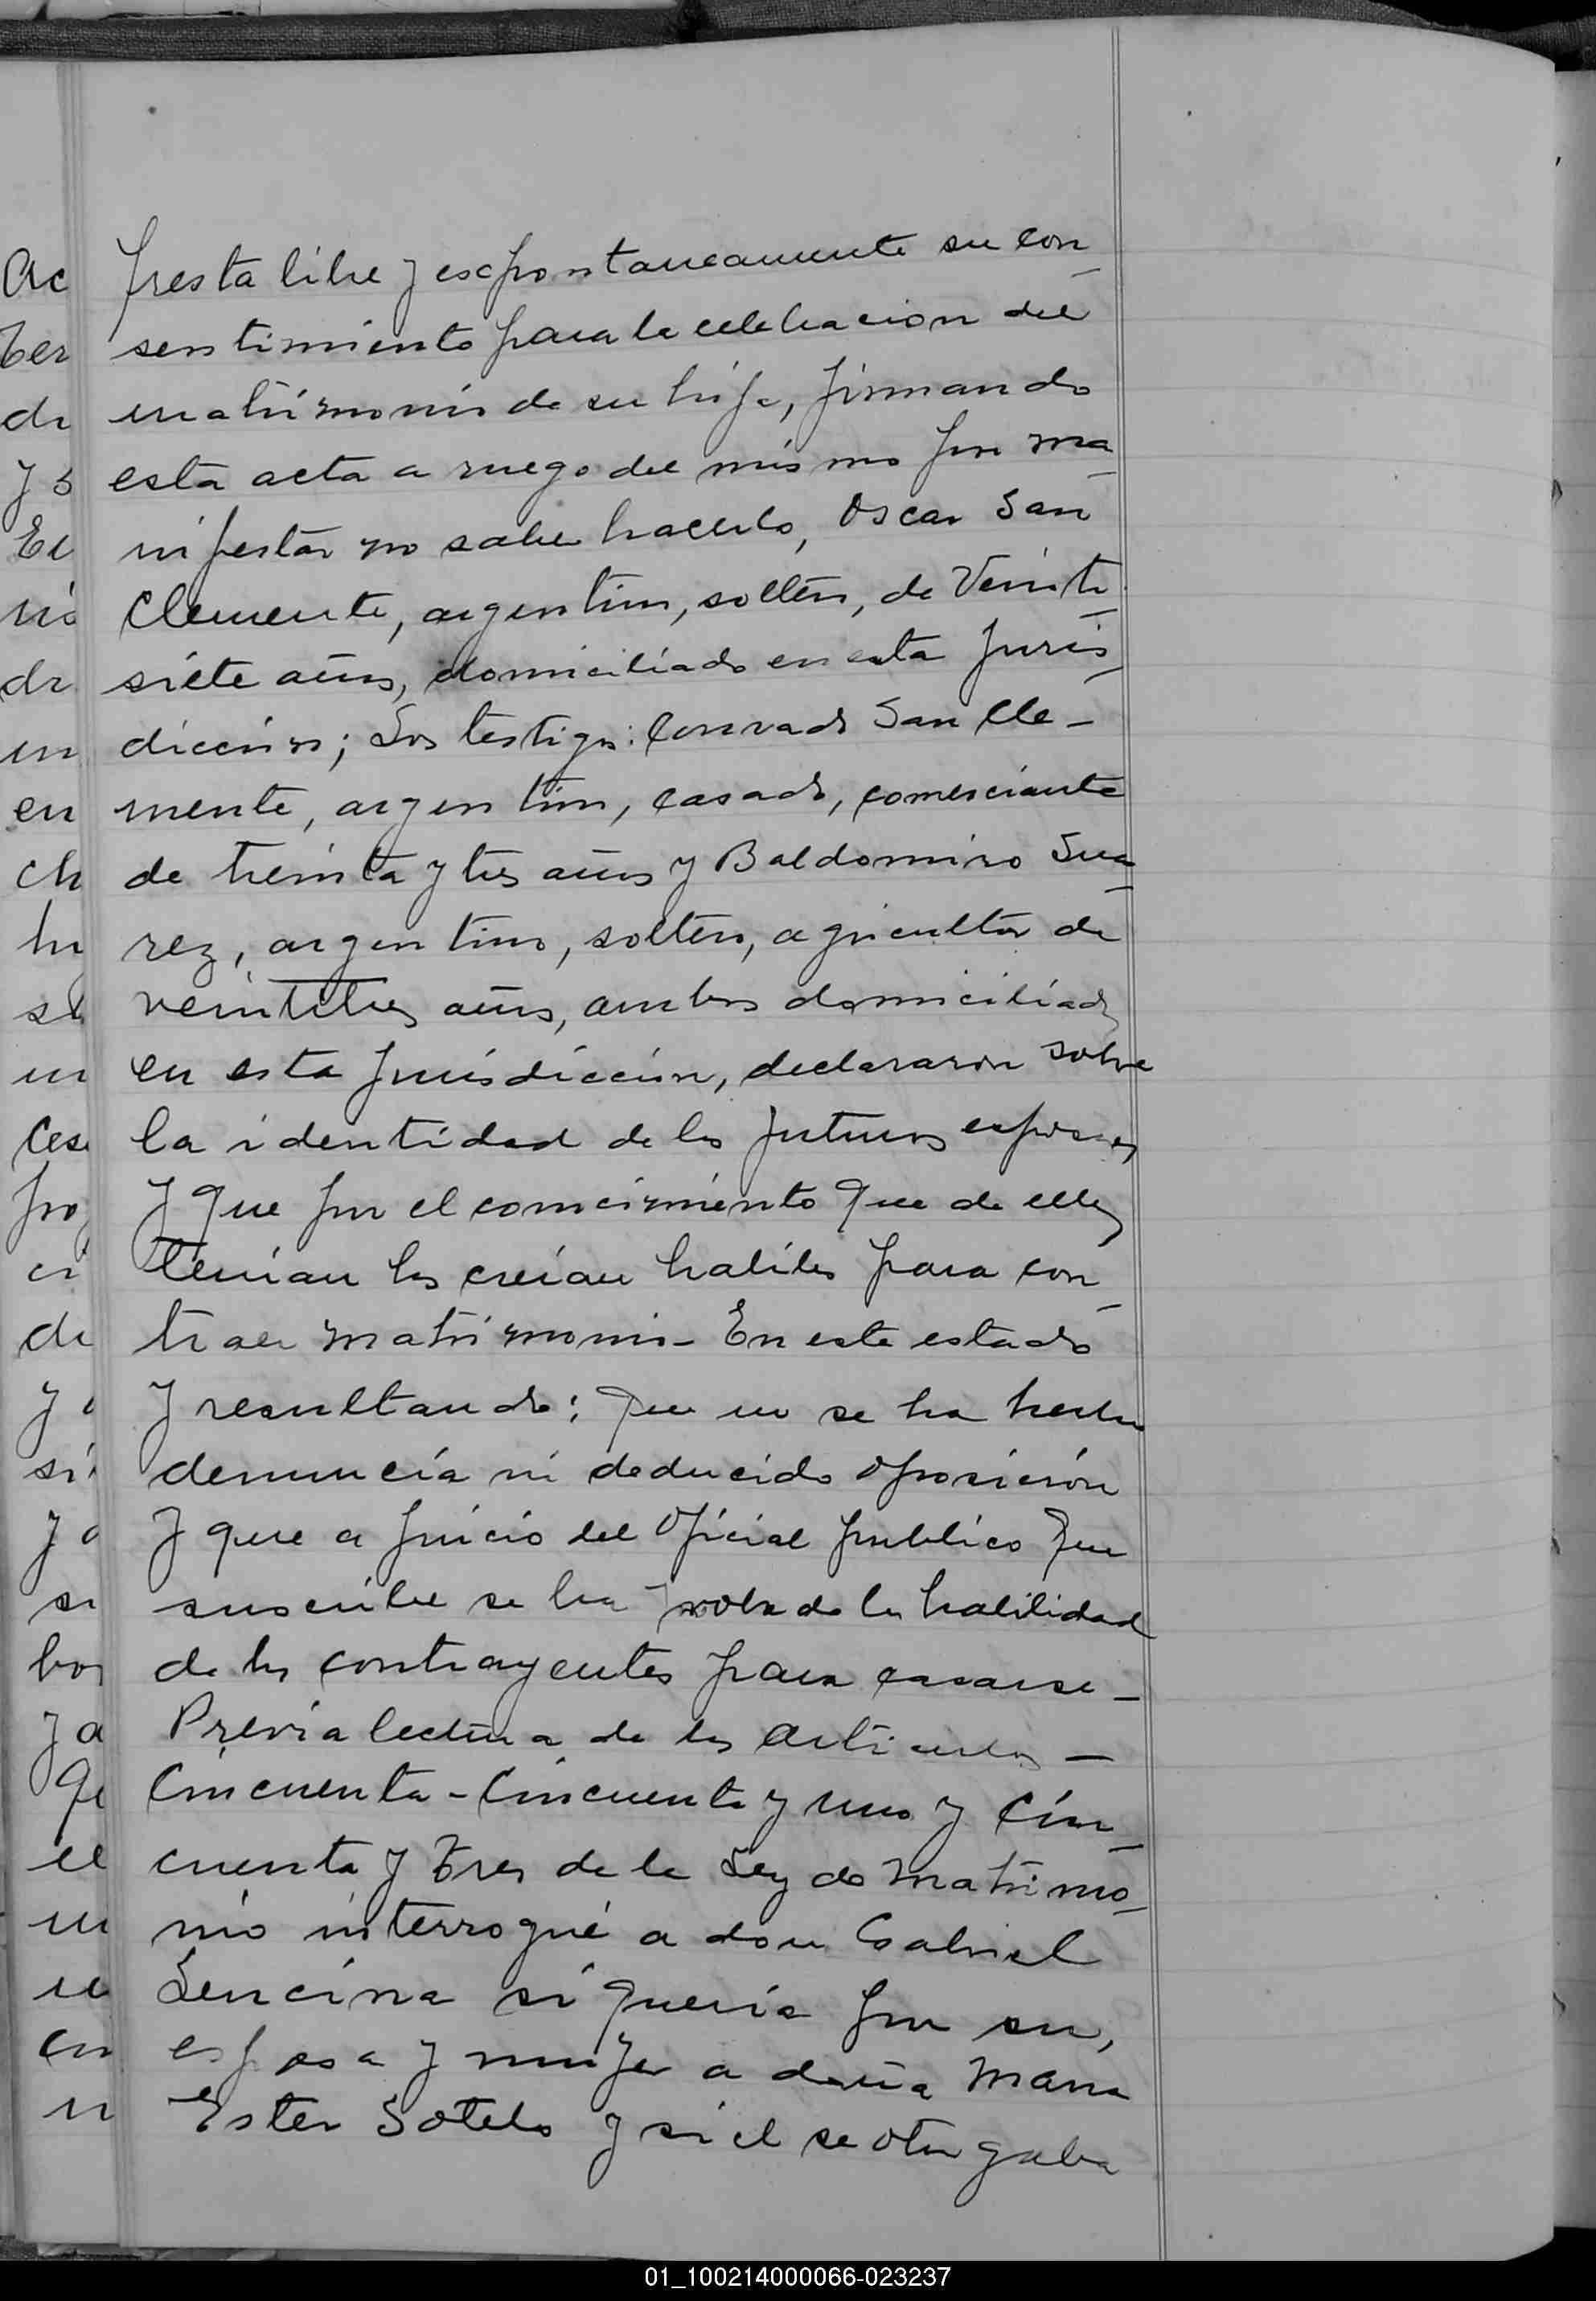 presta libre y expontaneamente su con
sentimiento para la celebracion del
matrimonio de su hija, firmando
esta acta a ruego del mismo por ma
nifestar no saber hacerlo, Oscar San
Clemente, argentino, soltero, de Veinti
siete años, domiciliado en esta juris
diccion; Los testigos: Conrado San Cle-
mente, argentino, casado, comerciante
de treinta y tres años y Baldomiro Sua
rez, argentino, soltero, agricultor de
veintitres años, ambos domiciliados
en esta jurisdiccion, declararon sobre
la identidad de los futuros esposos
y que por el conocimiento que de ellos
tenian los creian habiles para con
traer matrimonio- En este estado
y resultando: Que no se ha hecho
denuncia ni deducido oposición
y que a juicio del Oficial publico que
suscribe se ha probado la habilidad
de los contrayentes para casarse-
Previa lectura de los articulos -
Cincuenta-Cincuenta y uno y Cin
cuenta y Tres de la Ley de Matrimo
nio interrogué a don Gabriel
Lencina si queria por su,
esposa y mujer a doña Maria
Ester Sotelo y si el se otorgaba
Ac
Ter
de
y s
El
rio
dr
un
en
ch
hij
sl
un
Ces
pro
ci
de
y
si
y
si
bos
y a
Qu
el
un
ue
cu
u
01_100214000066-023237